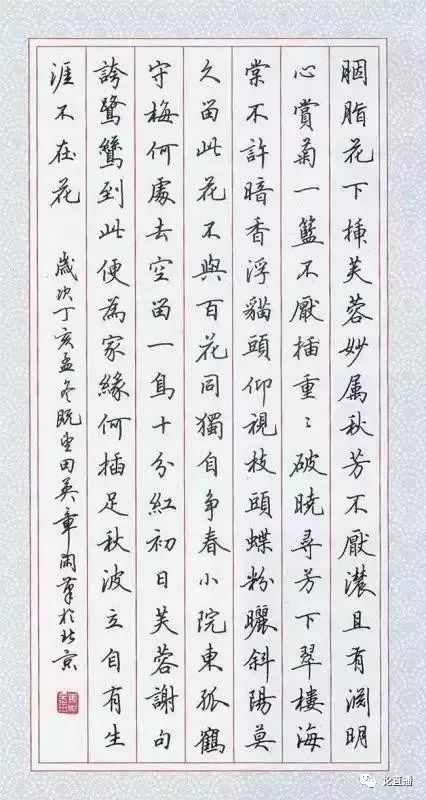 胭脂花下插芙蓉妙属秋芳不厭濃且有淵明
心賞菊一籃不厭插重〻破曉尋芳下翠樓海
棠不許暗香浮貓頭仰視枝頭蝶粉曬斜陽莫
久留此花不與百花同獨自爭春小院東孤鶴
守梅何處去空留一鳥十分紅初日芙蓉謝句
誇鷺鷥到此便為家緣何插足秋波立自有生
涯不在花
歲次丁亥孟冬既望田英章閑筆於北京
化直播